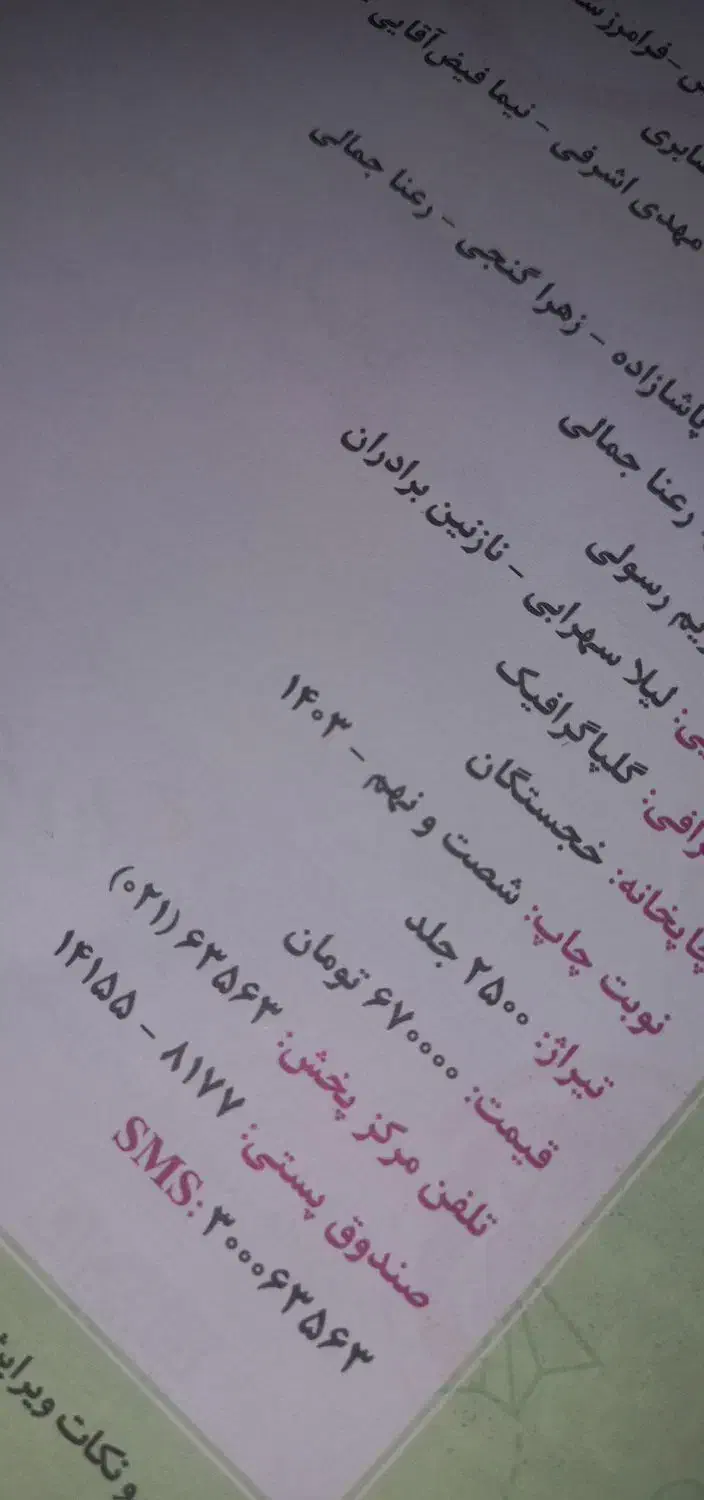 فرامرز
صابری
مهدی اشرفی - نیما فیض‌آقایی
پاشازاده - زهرا گنجی - رعنا جمالی
رعنا جمالی
رسولی
لیلا سهرابی - نازنین برادران
گلپاگرافیک
چاپخانه: خجستگان
نوبت چاپ: شصت و نهم - ۱۴۰۳
تیراژ: ۲۵۰۰ جلد
قیمت: ۶۷۰۰۰۰ تومان
تلفن مرکز پخش: ۶۳۵۶۳ (۰۲۱)
صندوق پستی: ۸۱۷۷ - ۱۴۱۵۵
SMS: ۳۰۰۰۶۳۵۶۳
و نکات